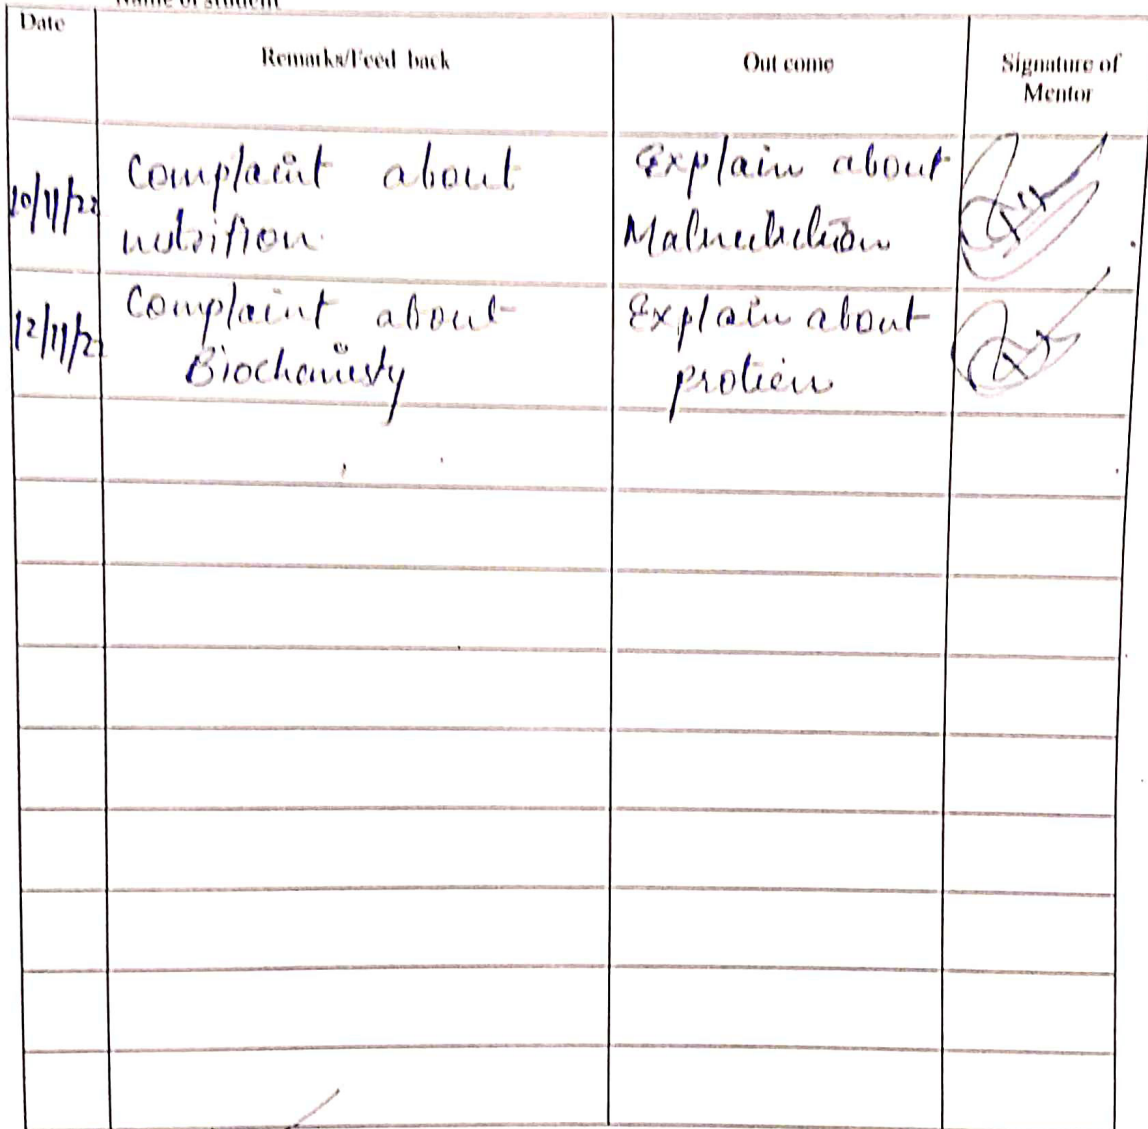 Name of student
Date
Remarks/Feed back
Out come
Signature of
Mentor
Complaint about
nutrition.
Explain about
Malnutrition
12/11/22
Complaint about
Biochemisty
Explain about
protien